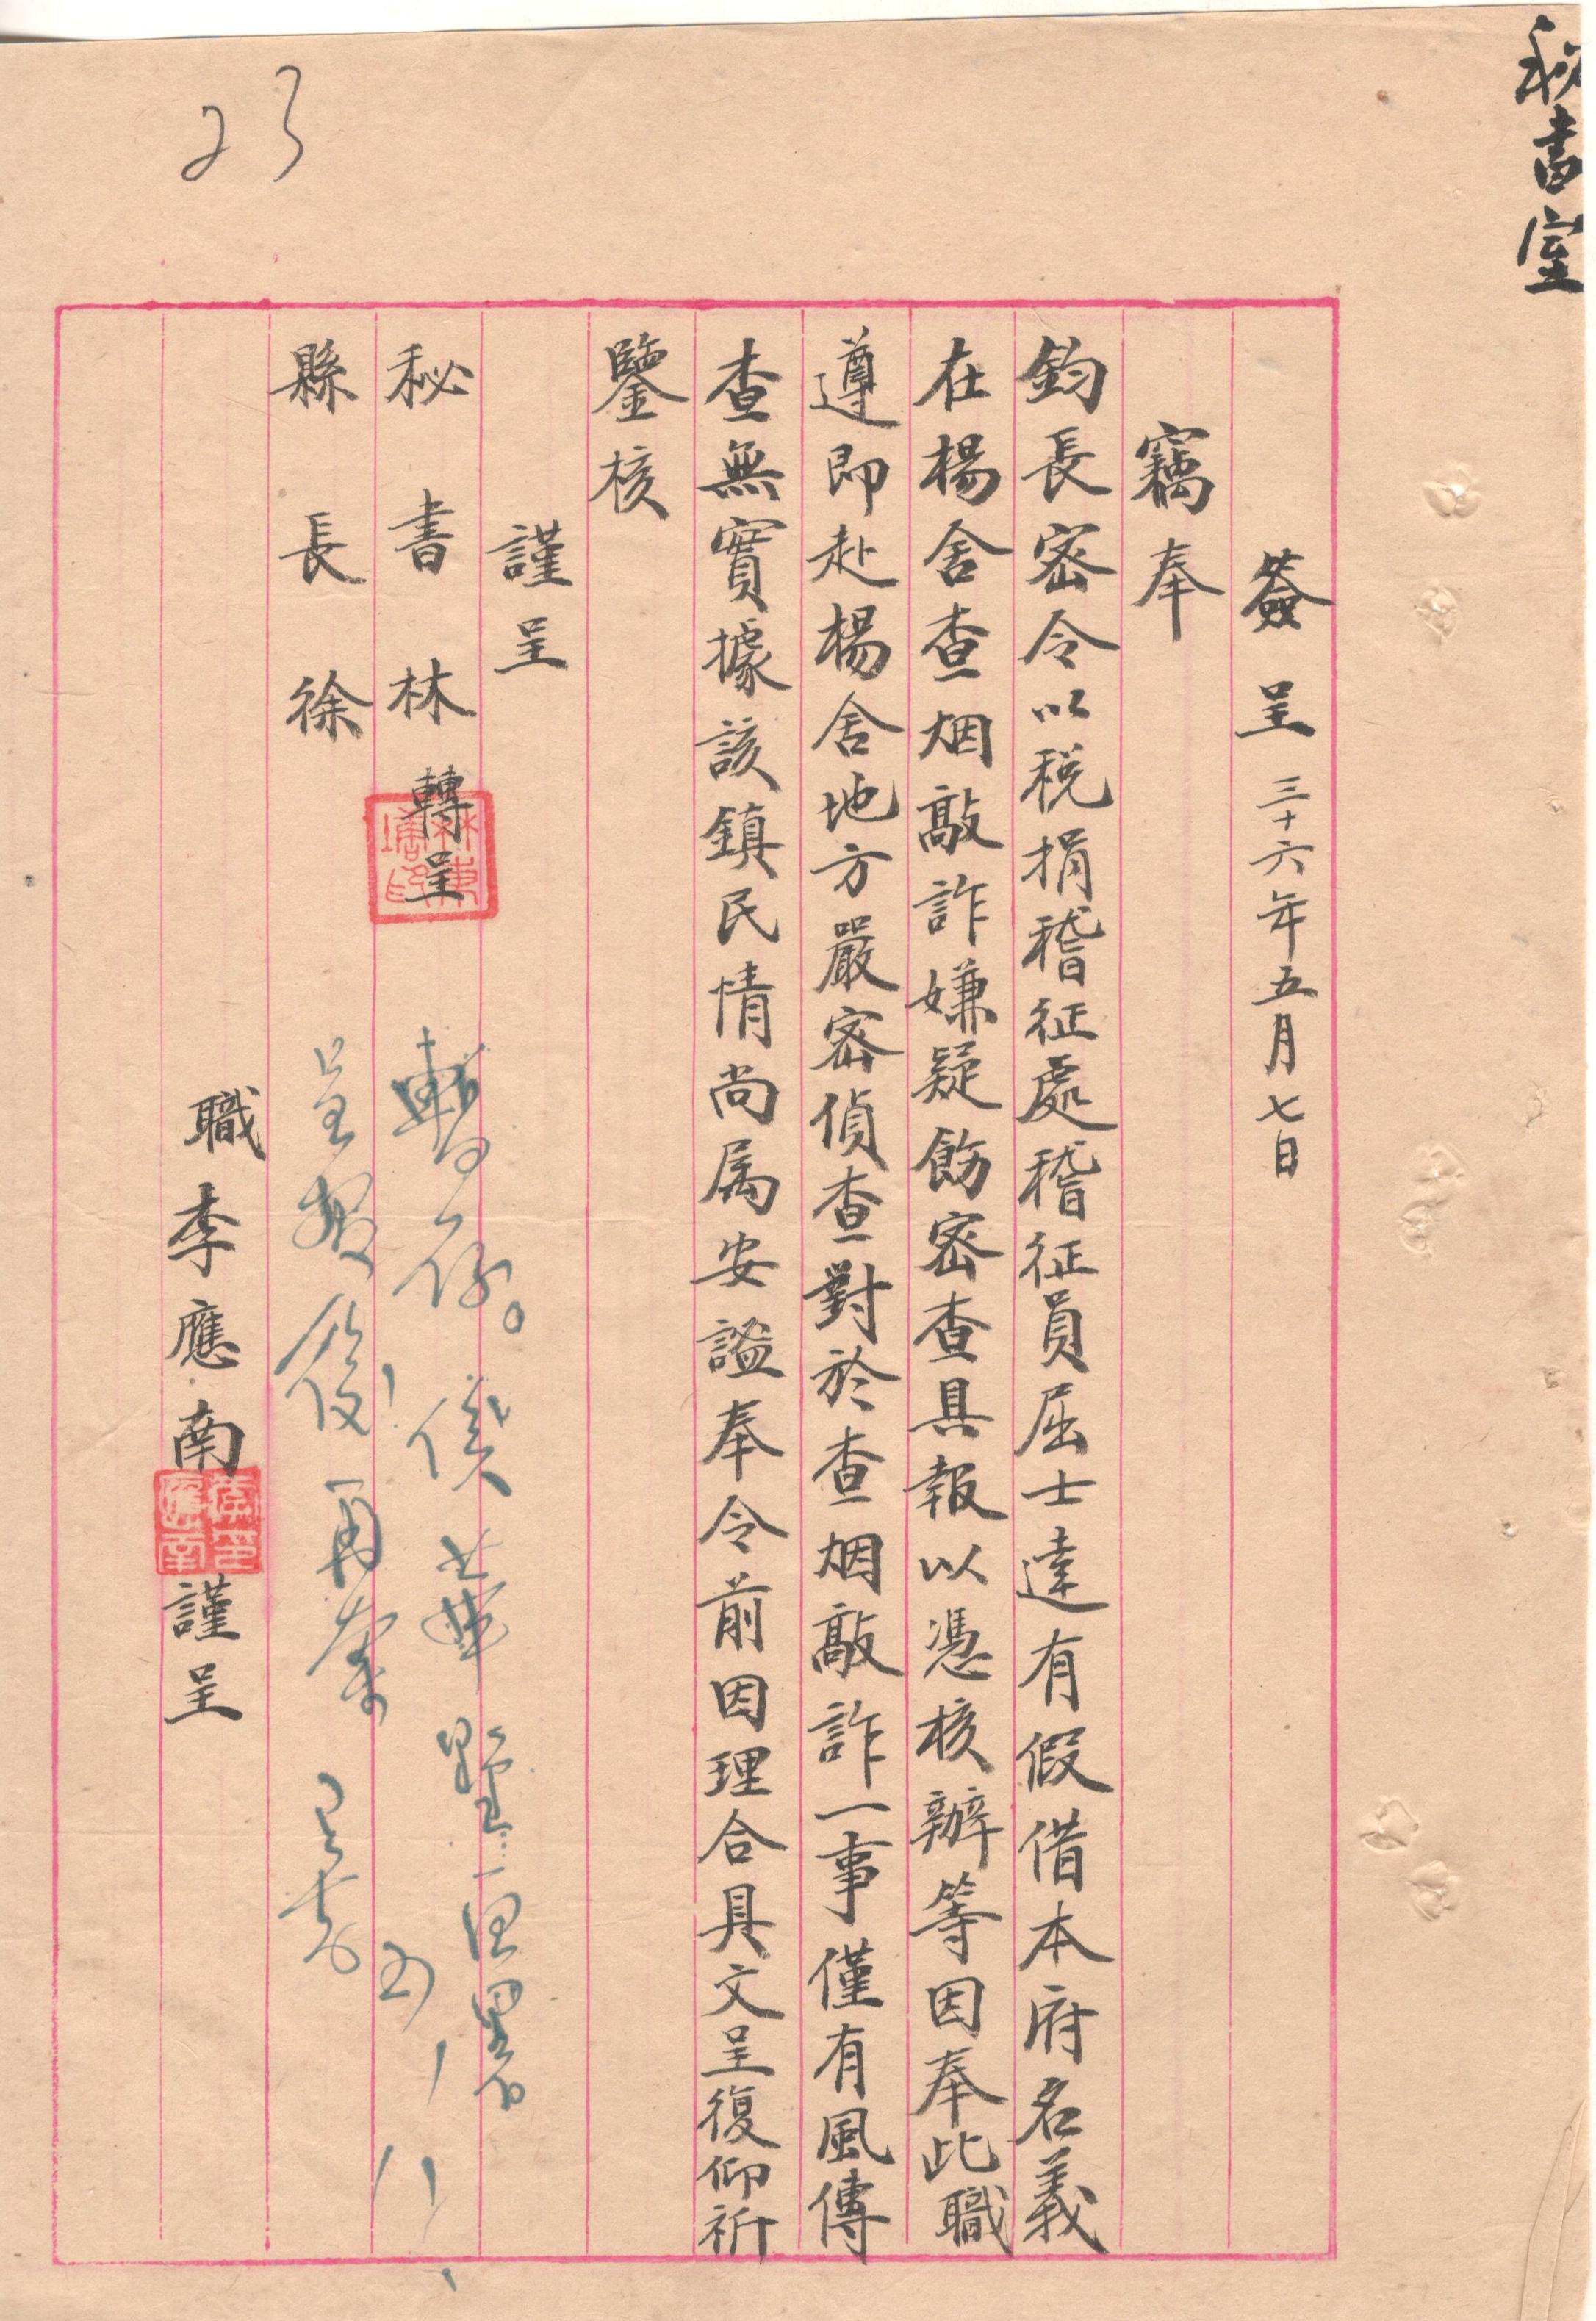 秘書室
23
簽呈 三十六年五月七日
竊奉
鈞長密令以税捐稽征處稽征員屈士達有假借本府名義
在楊舍查烟敲詐嫌疑飭密查具報以憑核辦等因奉此職
遵即赴楊舍地方嚴密偵查對於查烟敲詐一事僅有風傳
查無實據該鎮民情尚属安謐奉令前因理合具文呈復仰祈
鑒核
謹呈
秘書林轉呈
縣長徐
職李應南謹呈
暫存。
呈報後再奪